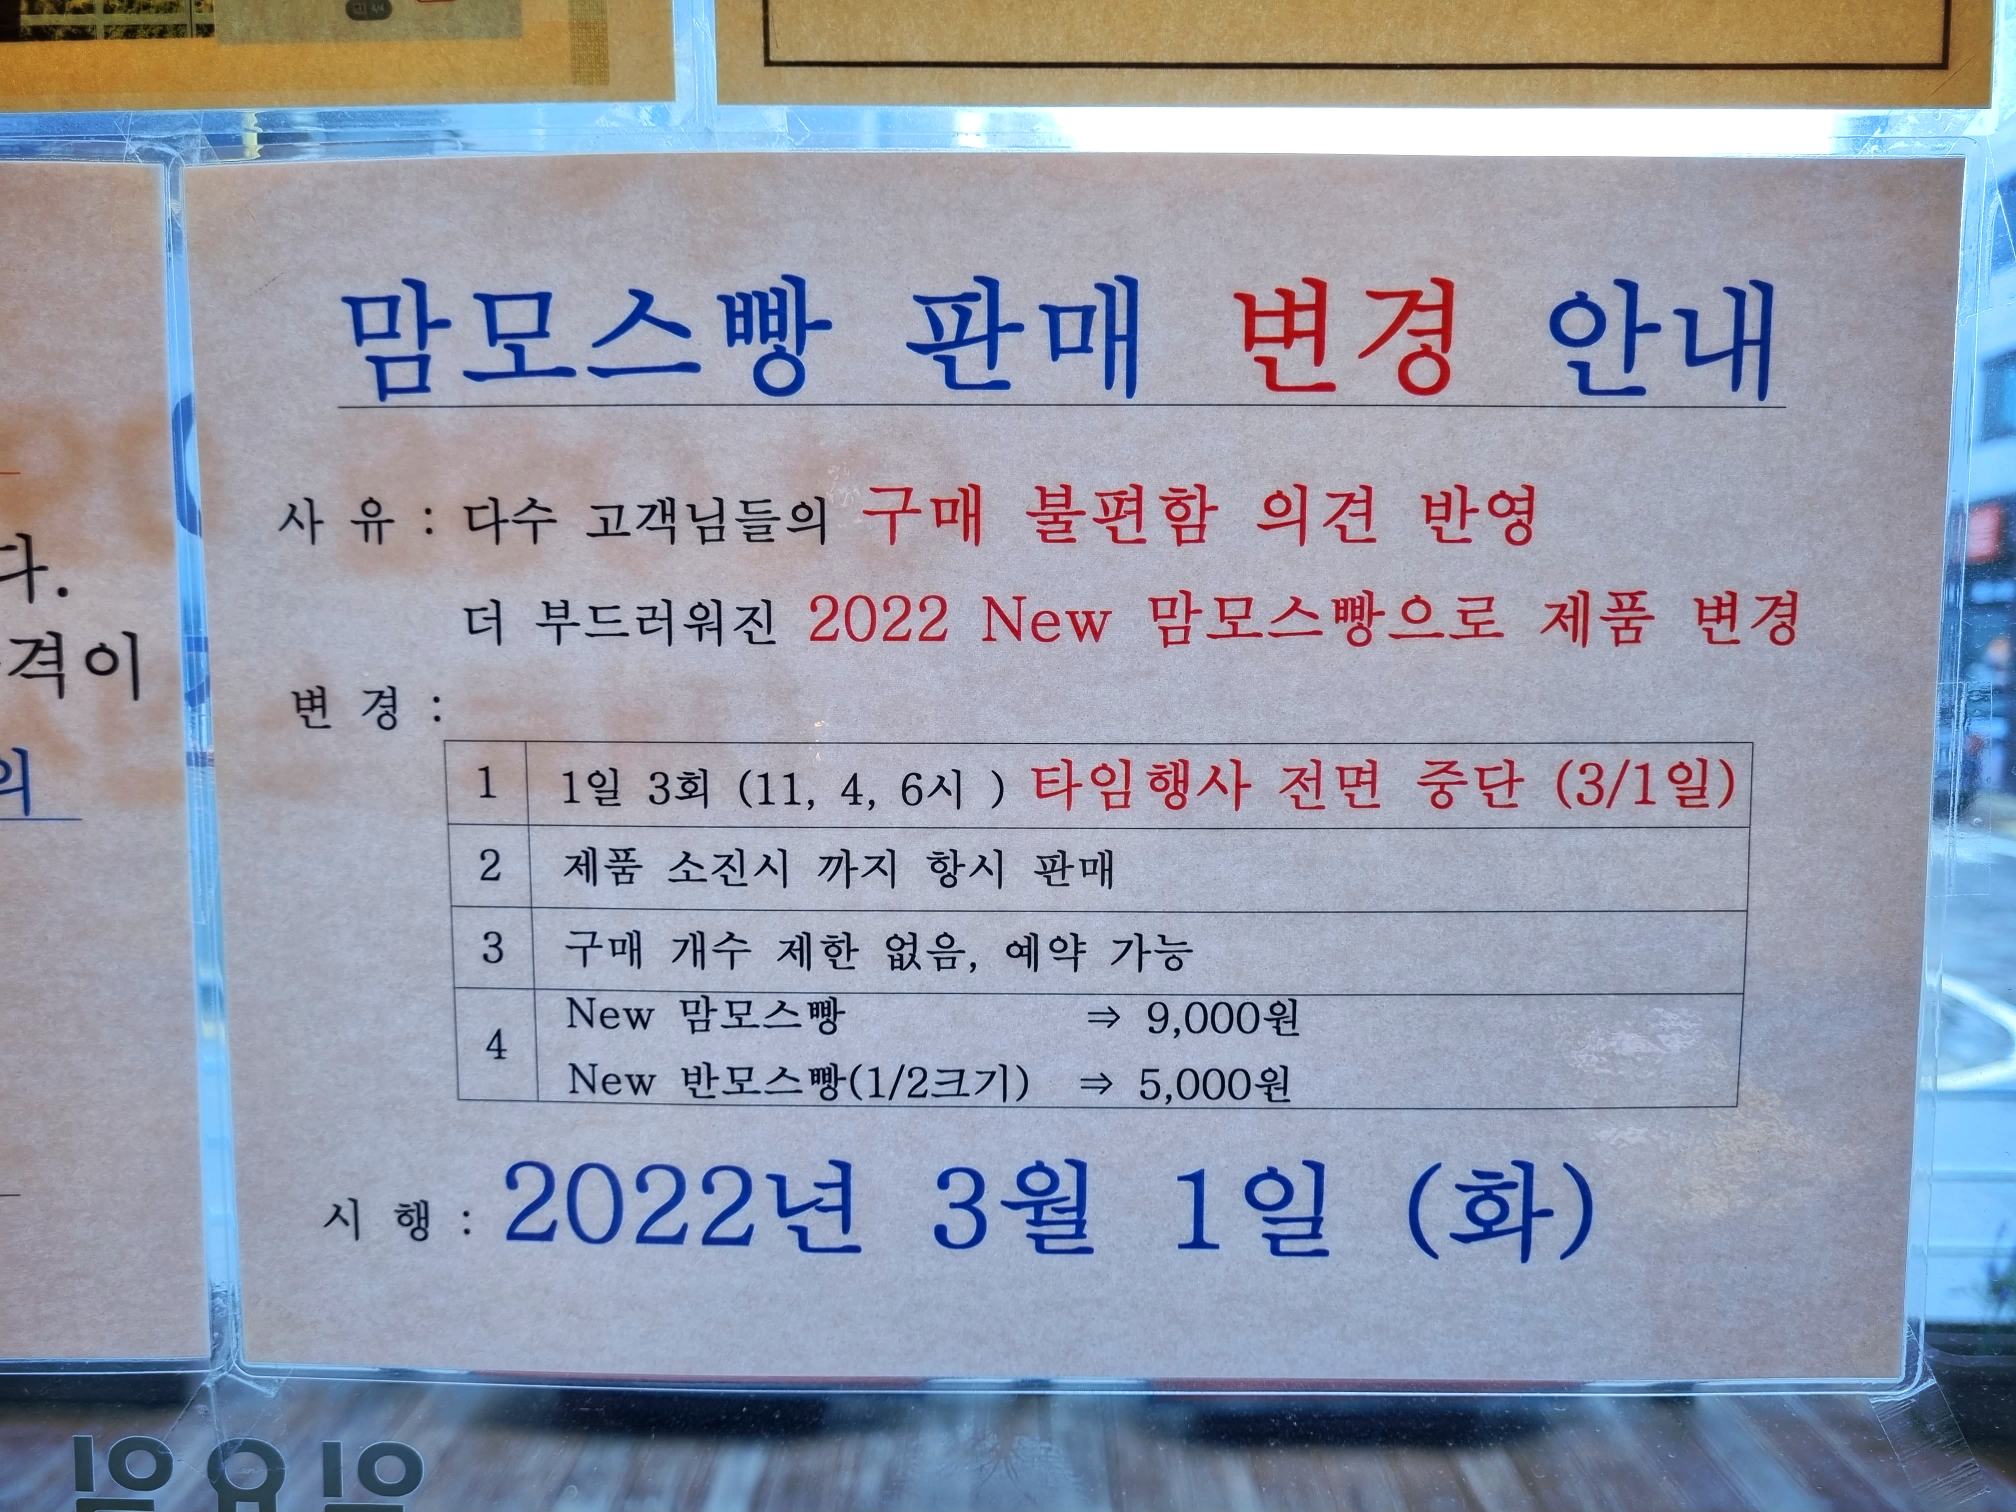 맘모스빵 판매 변경 안내
사 유 : 다수 고객님들의 구매 불편함 의견 반영
더 부드러워진 2022 New 맘모스빵으로 제품 변경
변 경 :
1 1일 3회 (11, 4, 6시 ) 타임행사 전면 중단 (3/1일)
2 제품 소진시 까지 항시 판매
3 구매 개수 제한 없음, 예약 가능
4 New 맘모스빵 ⇒ 9,000원
New 반모스빵(1/2크기) ⇒ 5,000원
시 행 : 2022년 3월 1일 (화)
다.
격이
의